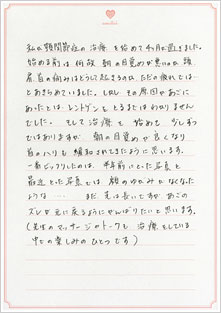 私は顎関節症の治療を始めて4ヶ月が過ぎました。
始める前は何故朝の目覚めが悪いのか、頭
肩、首の痛みはどうして起きるのか、ただの疲れでは…
とあきらめていました。しかしその原因があごに
あったとは、レントゲンをとるまではわかりません
でした。そして治療を始めた今、少しずつ
ではありますが、朝の目覚めが良くなり
首のハリも緩和されてきたように思います。
一番ビックリしたのは、半年前にとった写真と
最近とった写真では顔のゆがみがなくなった
ような…… まだ先は長いですがあごの
ズレが元に戻るようにがんばりたいと思います。
(先生のマッサージのトークも治療をしている
中での楽しみのひとつです)